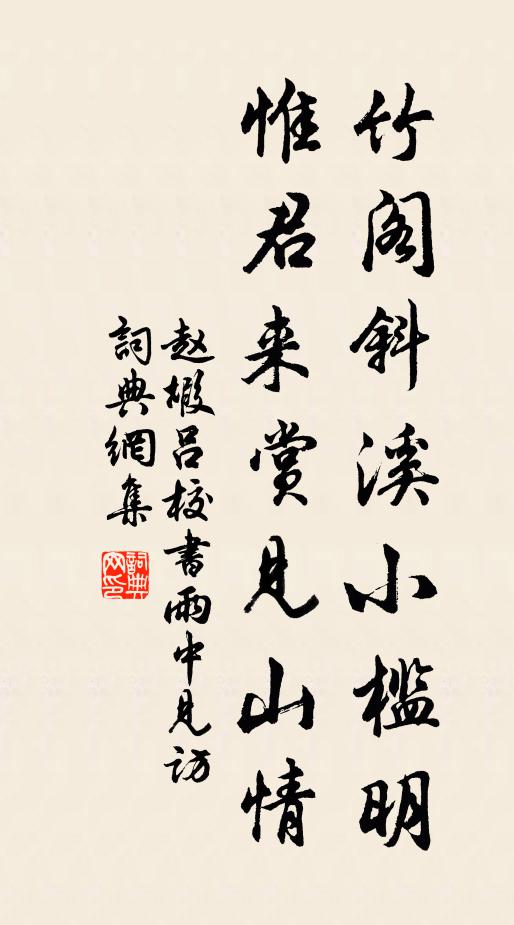 竹阁斜溪小槛明
惟君来赏见山情
赵嘏吕校书雨中见访
詞典網集
詞典网印